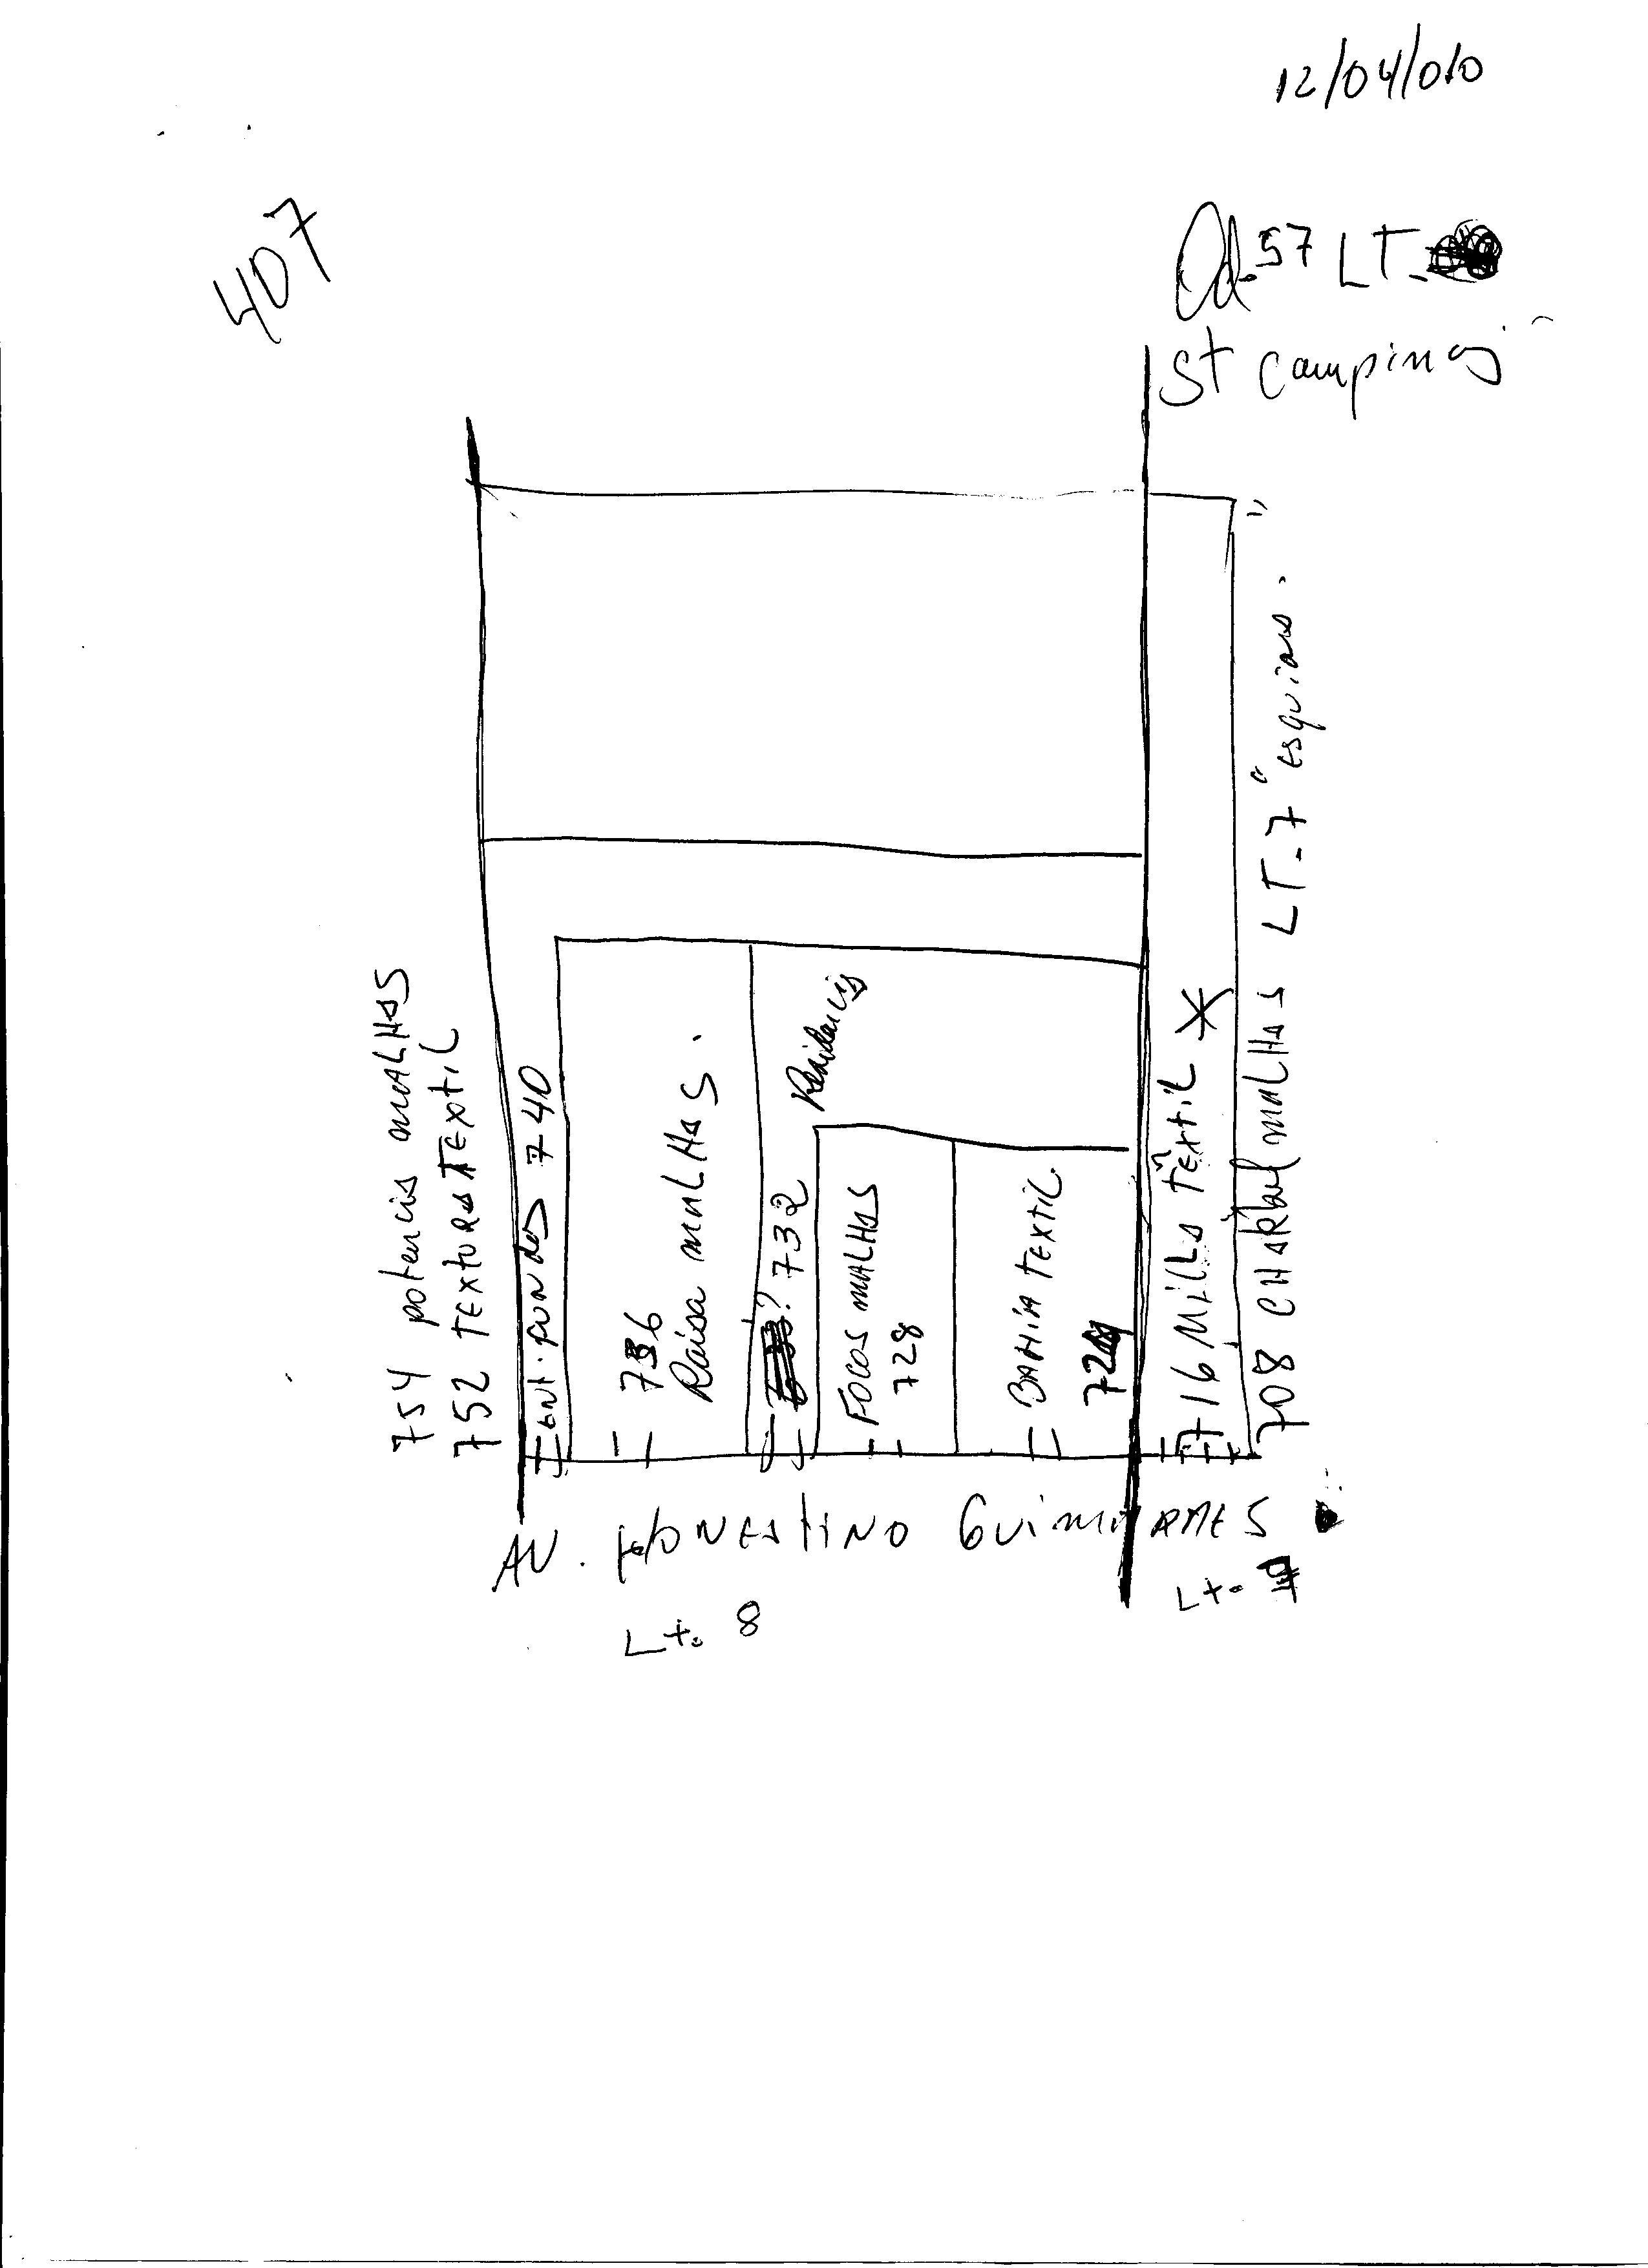 12/04/010
407
Qd. 57 LT-
St Campinas
754 potencia MALHAS
752 TEXTURA TEXTIL
ENT. FUNDOS 740
736
Raisa MALHAS.
? 732
Residencia
FOCOS MALHAS
728
BAHIA TEXTIL.
716 MILLA TEXTIL *
708 MALHAS LT-7 "esquina."
AV. HONESTINO GUIMARAES
Lt. 8
Lt.